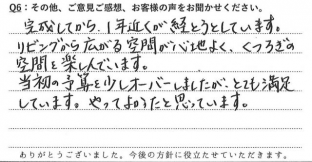 Q6：その他、ご意見ご感想、お客様の声をお聞かせください。
完成してから、1年近くが経とうとしています。
リビングから広がる空間が心地よく、くつろぎの
空間を楽しんでいます。
当初の予算を少しオーバーしましたが、とても満足
しています。やってよかったと思っています。
ありがとうございました。今後の方針に役立たせていただきます。